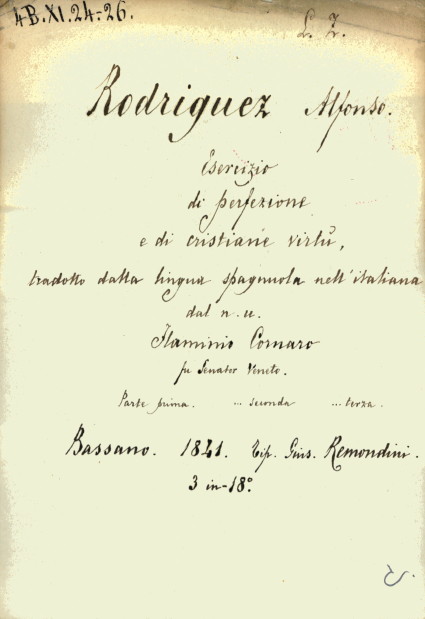 4B.XI.24-26.
L. Z.
Rodriguez Alfonso.
Esercizio
di perfezione
e di cristiane virtù,
tradotto dalla lingua spagnuola nell'italiana
dal n. u.
Flaminio Cornaro
fu Senator Veneto.
Parte prima. ... seconda ... terza.
Bassano. 1821. Tip. Gius. Remondini.
3 in-18°.